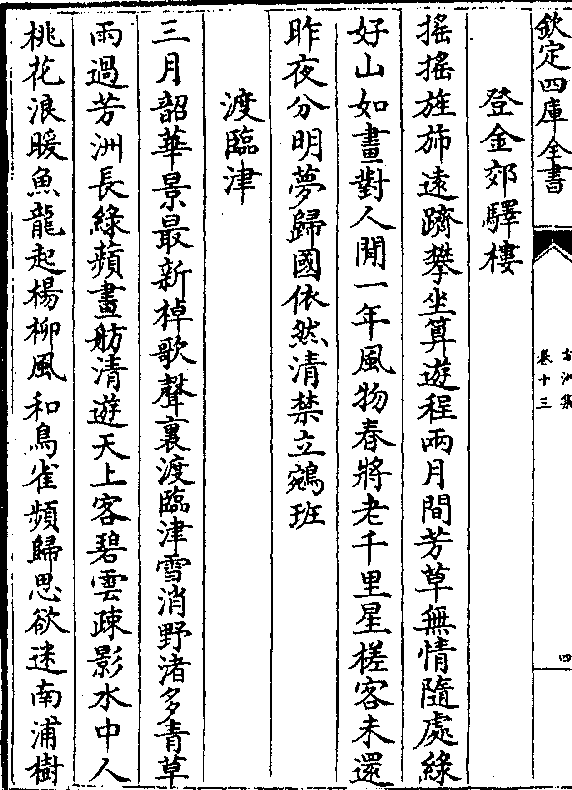 欽定四庫全書
卷十三
四
登金郊驛樓
搖搖旌斾遠躋攀坐算遊程兩月間芳草無情隨處緑
好山如畫對人閒一年風物春將老千里星槎客未還
昨夜分明夢歸國依然清禁立鵷班
渡臨津
三月韶華景最新棹歌聲裏渡臨津雪消野渚多青草
雨過芳洲長綠蘋畫舫清遊天上客碧雲疎影水中人
桃花浪暖魚龍起楊柳風和鳥雀頻歸思欲迷南浦樹